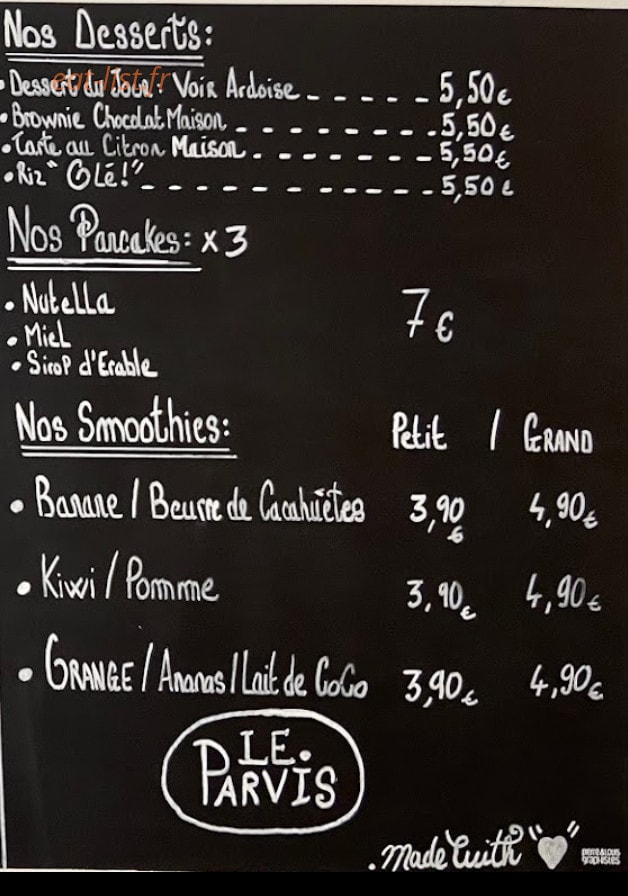 Nos Desserts:
eat-list.fr
• Dessert du Jour: Voir Ardoise - - - - - - 5,50€
• Brownie Chocolat Maison - - - - - - - - 5,50€
• Tarte au Citron Maison. - - - - - - - - 5,50€
• Riz "Olé!" - - - - - - - - - - - - 5,50€
Nos Pancakes: x3
• Nutella
7€
• Miel
• Sirop d'Erable
Nos Smoothies: Petit / GRAND
• Banane / Beurre de Cacahuètes 3,90€ 4,90€
• Kiwi / Pomme 3,90€ 4,90€
• GRANGE / Ananas / Lait de CoCo 3,90€ 4,90€
LE
PARVIS
.Made With "♥"
pierre&louis
graphistes